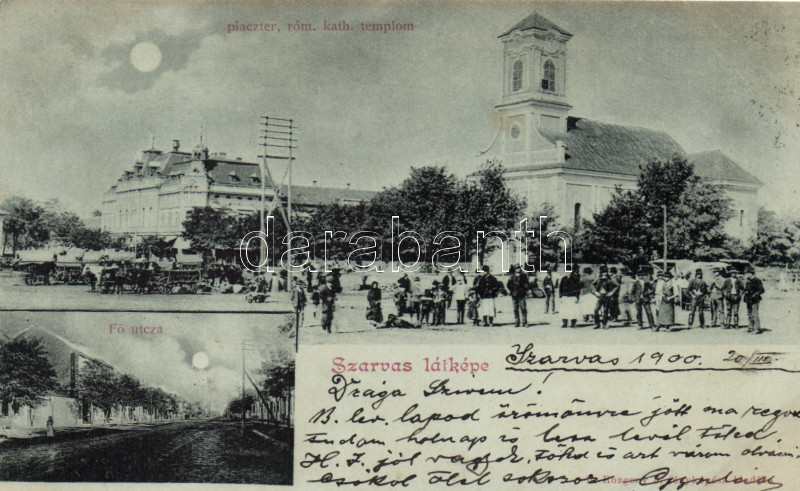 piaczter, róm. kath. templom
darabanth.com
Fő utcza
Szarvas látképe
Szarvas 1900. 20/III.
Drága Szivem!
B. lev. lapod örömömre jött ma reggel
tudom holnap is lesz levél tőled.
H. I. jól vagyok, Tőled is azt várom olvasni
csokol ölel sokszor